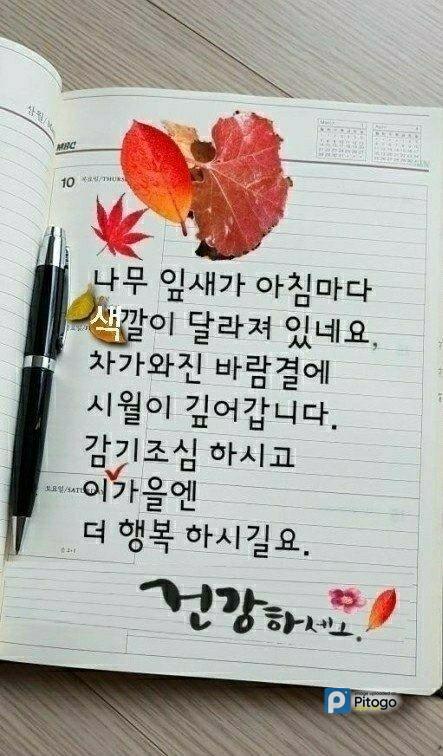 삼월/Ma
MBC
10 목요일/THURS
나무 잎새가 아침마다
색깔이 달라져 있네요,
차가와진 바람결에
시월이 깊어갑니다.
감기조심 하시고
토요일/SATURDAY
이가을엔
더 행복 하시길요.
건강하세요.
Pitogo